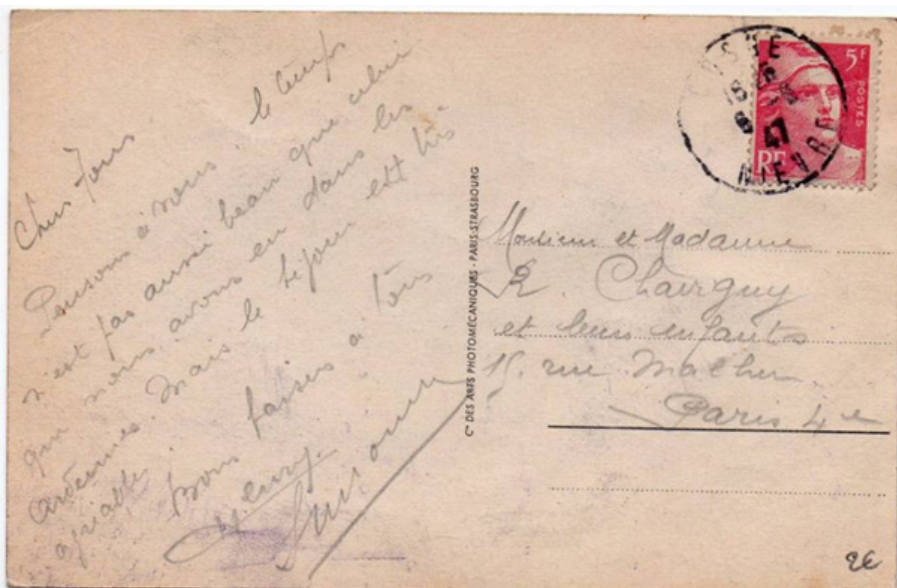 Chers Tous
Pensons à vous. le temps
n'est pas aussi beau que celui
que nous avons eu dans les
Ardennes. Mais le séjour est très
agréable.
Bons baisers à tous
Henry.
Simone
Cie DES ARTS PHOTOMÉCANIQUES - PARIS-STRASBOURG
5F
POSTES
RF
47
NIEVRE
Monsieur et Madame
et leurs enfants
15, rue Malher
Paris 4e
2€